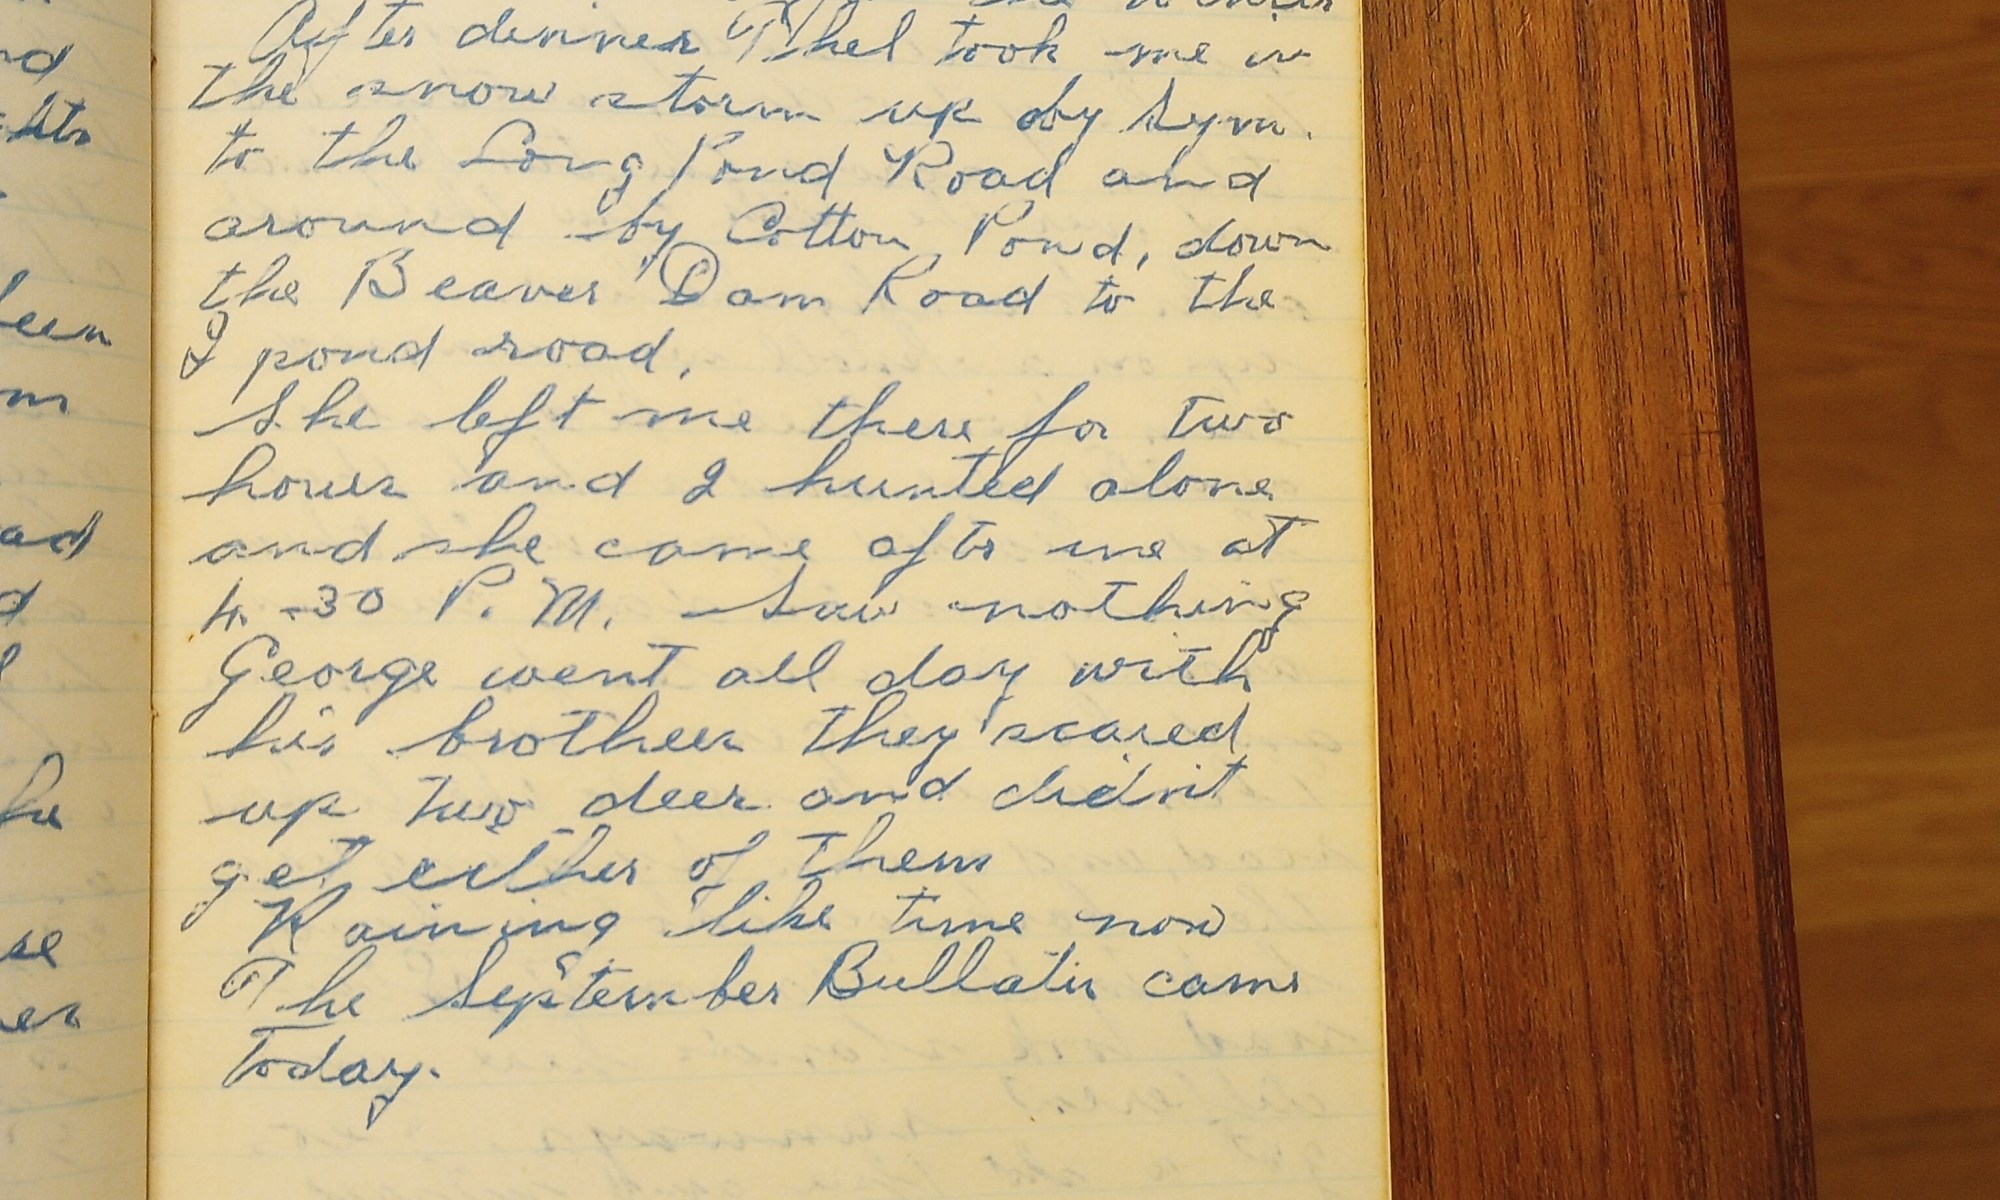 After dinner Thel took me in
the snow storm up by Sym.
to the Long Pond Road and
around by Cotton Pond, down
the Beaver Dam Road to the
J pond road.
She left me there for two
hours and I hunted alone
and she came aftr me at
4-30 P.M. Saw nothing
George went all day with
his brother they scared
up two deer and didn't
get either of them
Raining like time now
The September Bullatin came
Today.